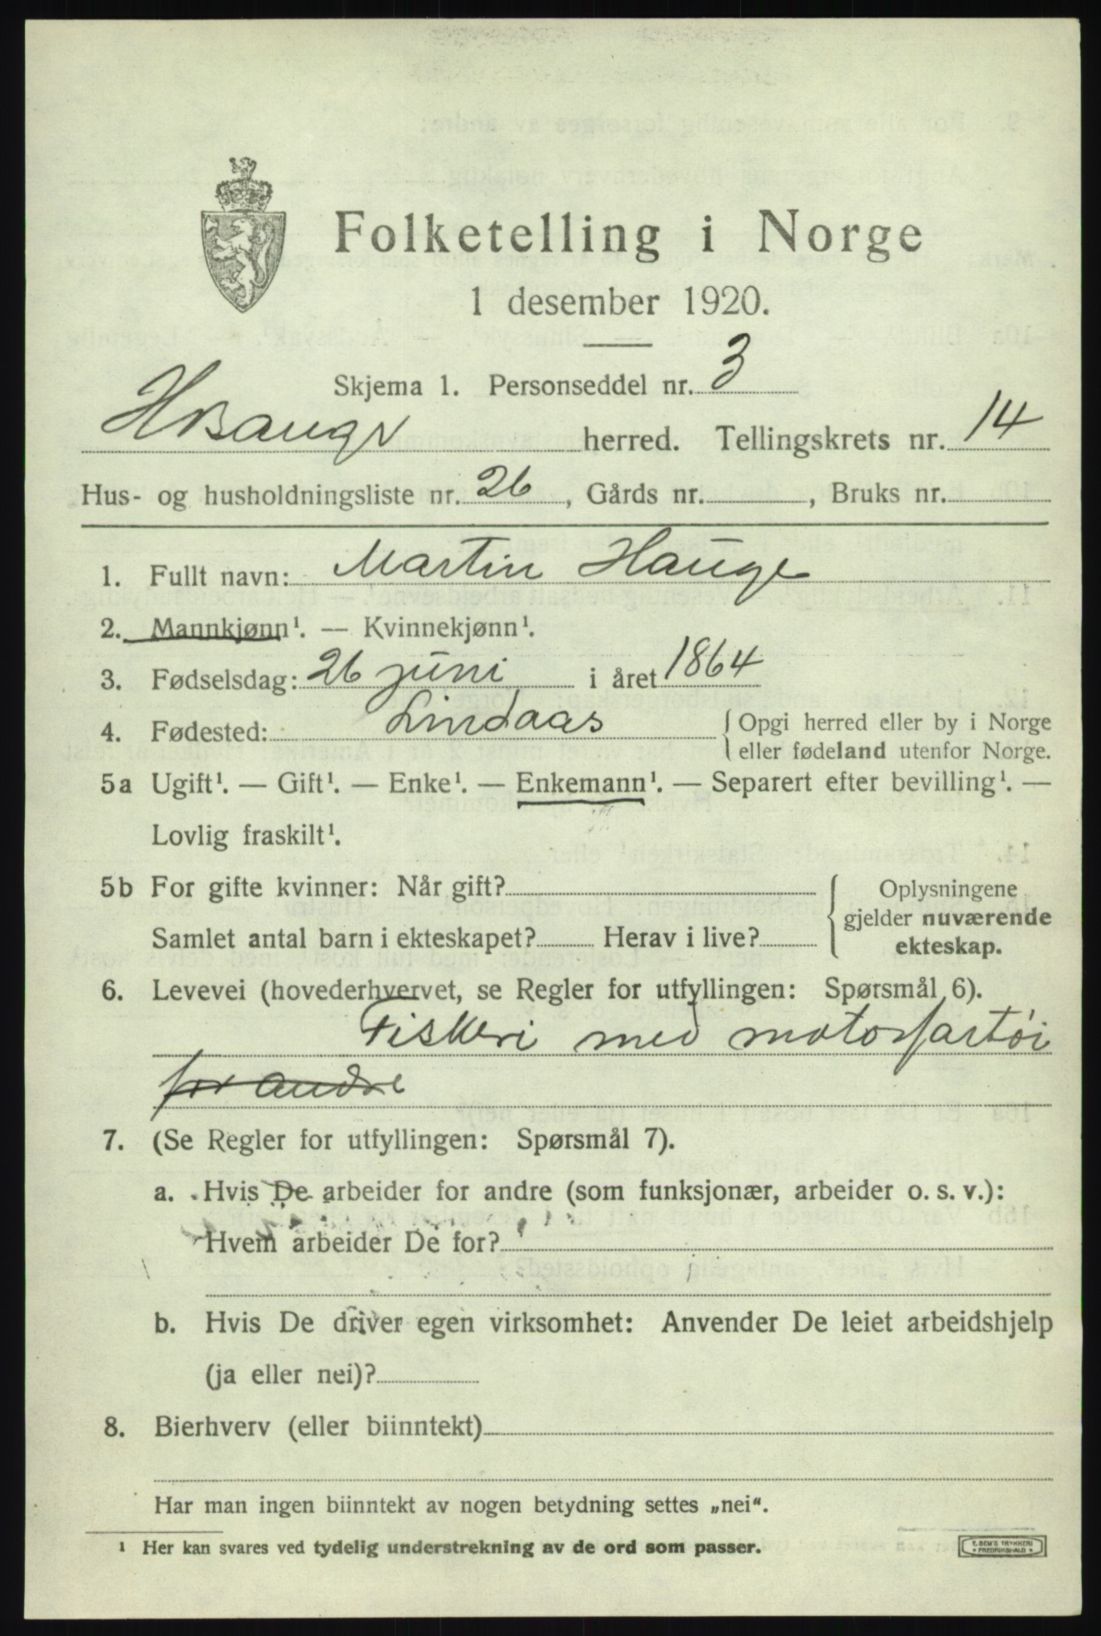 Folketelling i Norge
1 desember 1920.
Skjema 1. Personseddel nr. 3
Hosanger herred. Tellingskrets nr. 14
Hus- og husholdningsliste nr. 26, Gårds nr. , Bruks nr.
1. Fullt navn: Martin Hauge
2. Mannkjønn¹. — Kvinnekjønn¹.
3. Fødselsdag: 26 juni i året 1864
4. Fødested: Lindaas {Opgi herred eller by i Norge
eller fødeland utenfor Norge.
5a Ugift¹. — Gift¹. — Enke¹. — Enkemann¹. — Separert efter bevilling¹. —
Lovlig fraskilt¹.
5b For gifte kvinner: Når gift? { Oplysningene
gjelder nuværende
Samlet antal barn i ekteskapet? Herav i live? ekteskap.
6. Levevei (hovederhvervet, se Regler for utfyllingen: Spørsmål 6).
Fiskeri med motorfartøi
for andre
7. (Se Regler for utfyllingen: Spørsmål 7).
a. Hvis De arbeider for andre (som funksjonær, arbeider o. s. v.):
Hvem arbeider De for?
b. Hvis De driver egen virksomhet: Anvender De leiet arbeidshjelp
(ja eller nei)?
8. Bierhverv (eller biinntekt)
Har man ingen biinntekt av nogen betydning settes „nei“.
¹ Her kan svares ved tydelig understrekning av de ord som passer.